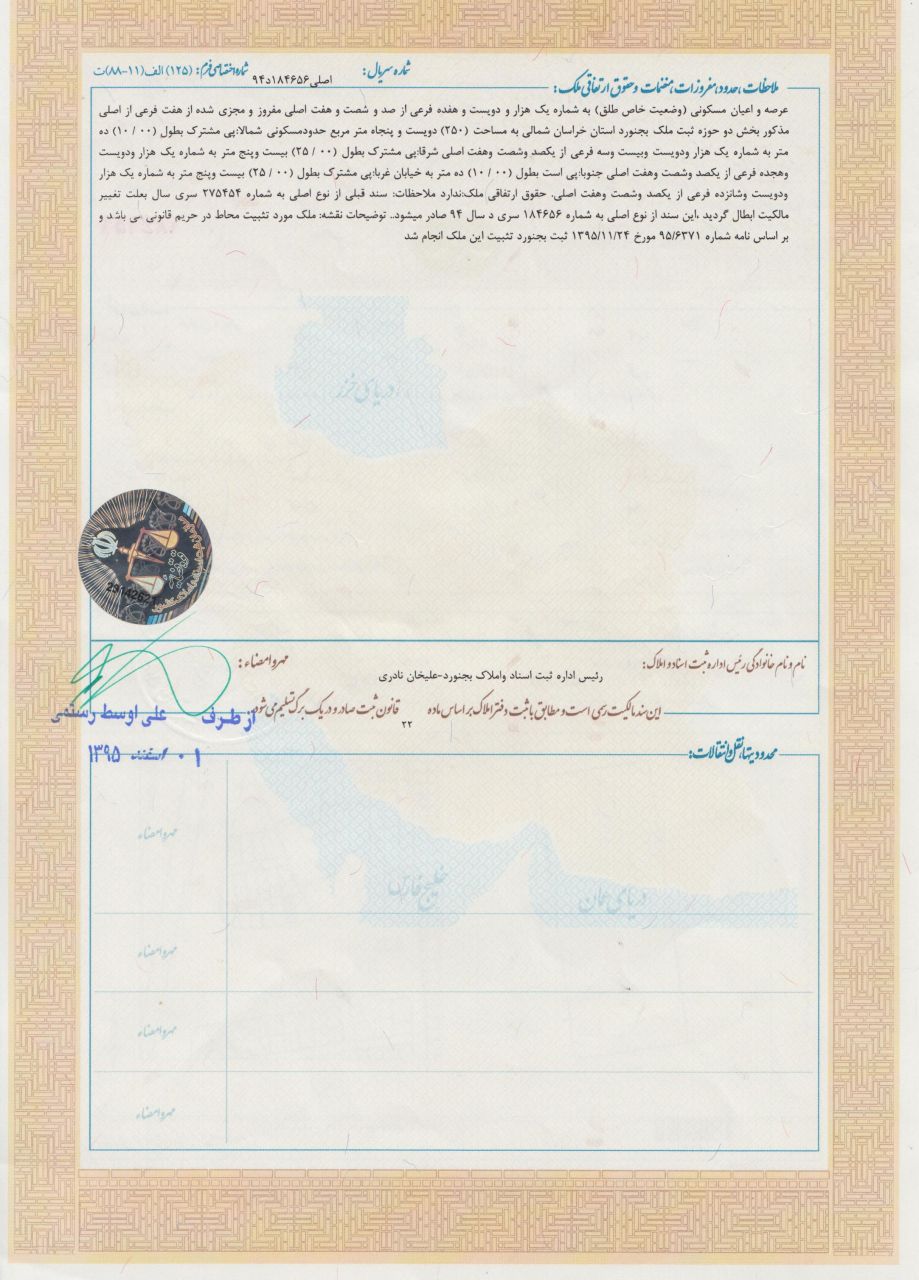 شماره سریال: اصلی۱۸۴۶۵۶د۹۴ شماره اختصاصی فرم: (۱۲۵) الف(۱۱-۸۸)ت
ملاحظات، حدود، مفروزات، منضمات و حقوق ارتفاقی ملک:
عرصه و اعیان مسکونی (وضعیت خاص طلق) به شماره یک هزار و دویست و هفده فرعی از صد و شصت و هفت اصلی مفروز و مجزی شده از هفت فرعی از اصلی
مذکور بخش دو حوزه ثبت ملک بجنورد استان خراسان شمالی به مساحت (۲۵۰) دویست و پنجاه متر مربع حدودمسکونی شمالا:پی مشترک بطول (۰۰ / ۱۰) ده
متر به شماره یک هزار ودویست وبیست وسه فرعی از یکصد وشصت وهفت اصلی شرقا:پی مشترک بطول (۰۰ / ۲۵) بیست وپنج متر به شماره یک هزار ودویست
وهجده فرعی از یکصد وشصت وهفت اصلی جنوبا:پی است بطول (۰۰ / ۱۰) ده متر به خیابان غربا:پی مشترک بطول (۰۰ / ۲۵) بیست وپنج متر به شماره یک هزار
ودویست وشانزده فرعی از یکصد وشصت وهفت اصلی. حقوق ارتفاقی ملک:ندارد ملاحظات: سند قبلی از نوع اصلی به شماره ۲۷۵۴۵۴ سری سال بعلت تغییر
مالکیت ابطال گردید ،این سند از نوع اصلی به شماره ۱۸۴۶۵۶ سری د سال ۹۴ صادر میشود. توضیحات نقشه: ملک مورد تثبیت محاط در حریم قانونی می باشد و
بر اساس نامه شماره ۹۵/۶۳۷۱ مورخ ۱۳۹۵/۱۱/۲۴ ثبت بجنورد تثبیت این ملک انجام شد
دریای خزر
نام و نام خانوادگی رئیس اداره ثبت اسناد و املاک: مهر و امضاء:
رئیس اداره ثبت اسناد واملاک بجنورد-علیخان نادری
این سند مالکیت رسمی است و مطابق با ثبت دفتر املاک بر اساس ماده ۲۲ قانون ثبت صادر و در یک برگ تسلیم می شود
از طرف علی اوسط رستمی
۰۱ اسفند ۱۳۹۵
محدودیتها، نقل و انتقالات:
مهر و امضاء
خلیج فارس
دریای عمان
مهر و امضاء
مهر و امضاء
مهر و امضاء